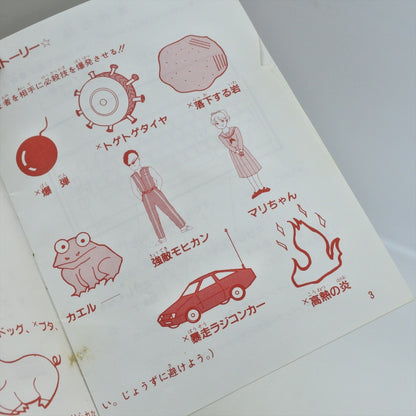 トーリー☆
者を相手に必殺技を爆発させる!!
×爆弾
×トゲトゲタイヤ
×落下する岩
カエル
強敵モヒカン
マリちゃん
×暴走ラジコンカー
×高熱の炎
3
ドッグ、×ブタ、
い。じょうずに避けよう。)